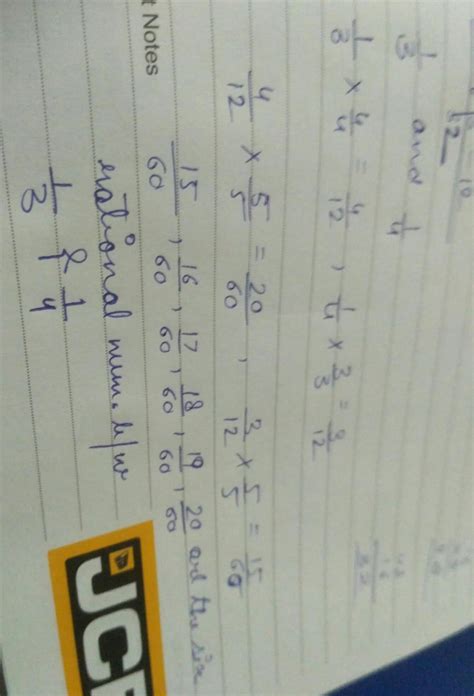 1/3 and 1/4
1/3 × 4/4 = 4/12 , 1/4 × 3/3 = 3/12
4/12 × 5/5 = 20/60 , 3/12 × 5/5 = 15/60
15/60 , 16/60 , 17/60 , 18/60 , 19/60 , 20/60 are the six
rational num. b/w
1/3 & 1/4
t Notes
JC